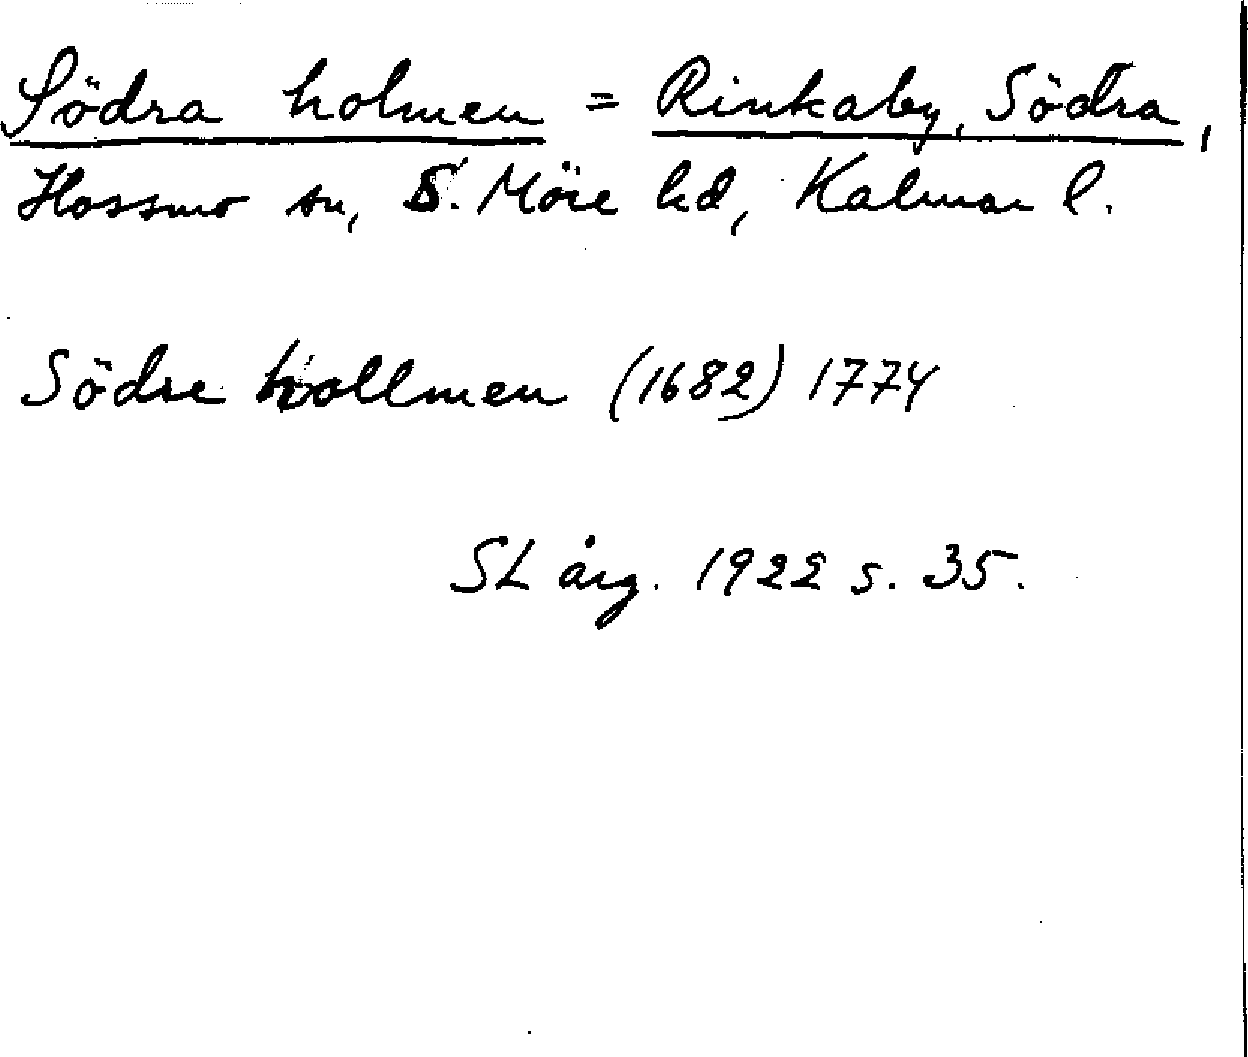 Södra holmen = Rinkaby, Södra,
Hossmo sn, S. Möre hd, Kalmar l.
Södre hollmen (1682) 1774
SL årg. 1922 s. 35.